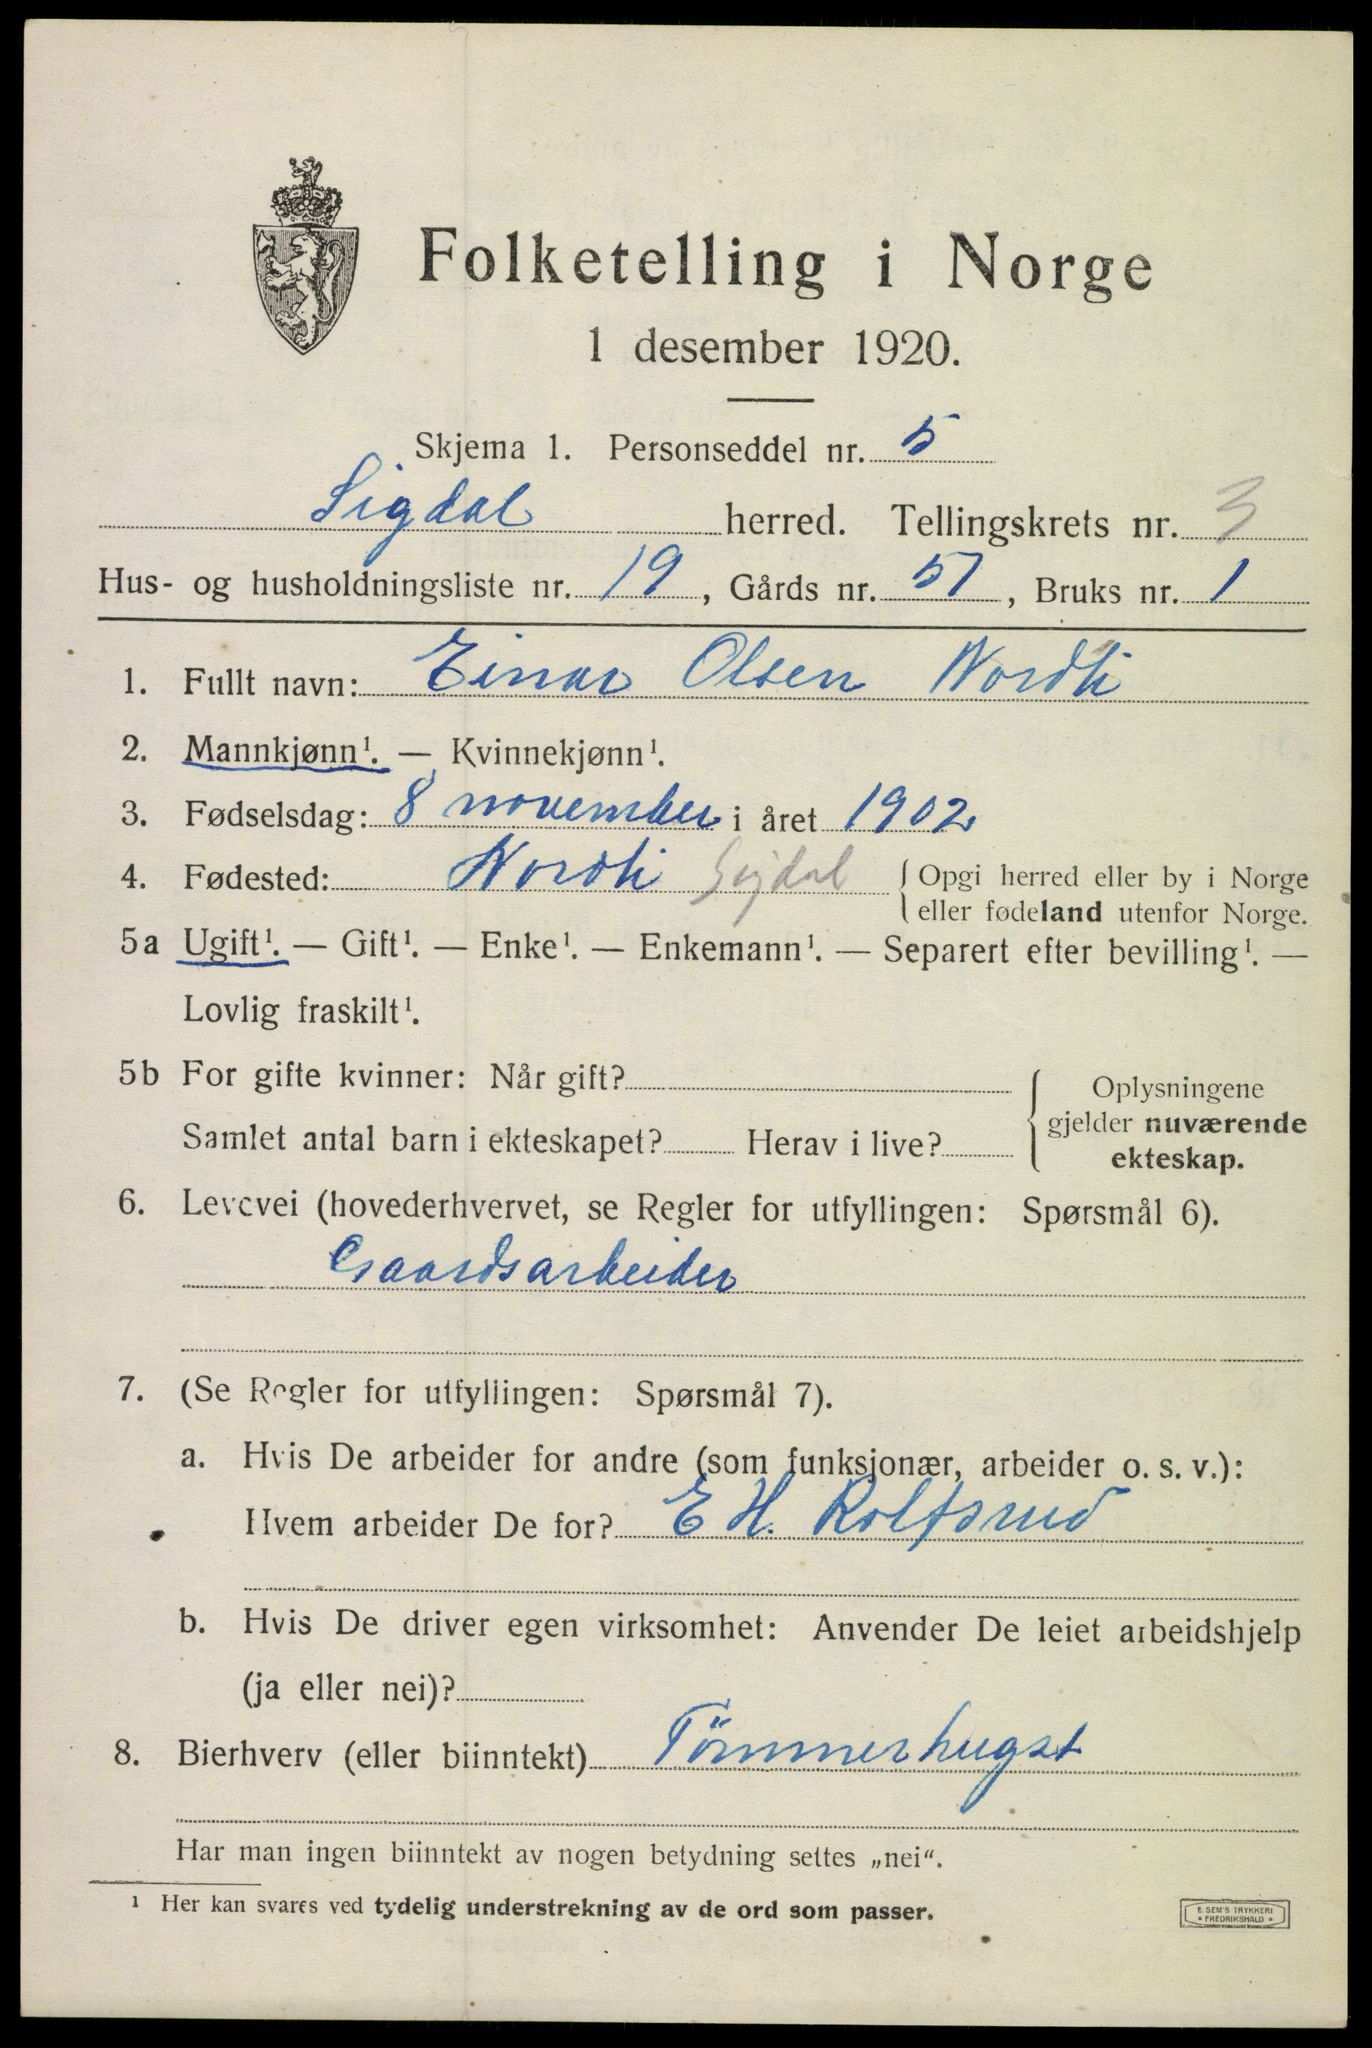 Folketelling i Norge
1 desember 1920.
Skjema 1. Personseddel nr. 5
Sigdal herred. Tellingskrets nr. 3
Hus- og husholdningsliste nr. 19, Gårds nr. 57, Bruks nr. 1
1. Fullt navn: Einar Olsen Nordli
2. Mannkjønn¹. — Kvinnekjønn¹.
3. Fødselsdag: 8 november i året 1902
4. Fødested: Nordli Sigdal { Opgi herred eller by i Norge
eller fødeland utenfor Norge.
5a Ugift¹. — Gift¹. — Enke¹. — Enkemann¹. — Separert efter bevilling¹. —
Lovlig fraskilt¹.
5b For gifte kvinner: Når gift?
Samlet antal barn i ekteskapet? Herav i live?
{ Oplysningene
gjelder nuværende
ekteskap.
6. Levevei (hovederhvervet, se Regler for utfyllingen: Spørsmål 6).
Gaardsarbeider
7. (Se Regler for utfyllingen: Spørsmål 7).
a. Hvis De arbeider for andre (som funksjonær, arbeider o. s. v.):
Hvem arbeider De for? E H. Rolfsrud
b. Hvis De driver egen virksomhet: Anvender De leiet arbeidshjelp
(ja eller nei)?
8. Bierhverv (eller biinntekt) Tömmerhugst
Har man ingen biinntekt av nogen betydning settes „nei“.
¹ Her kan svares ved tydelig understrekning av de ord som passer.
E. SEM'S TRYKKERI
• FREDRIKSHALD •